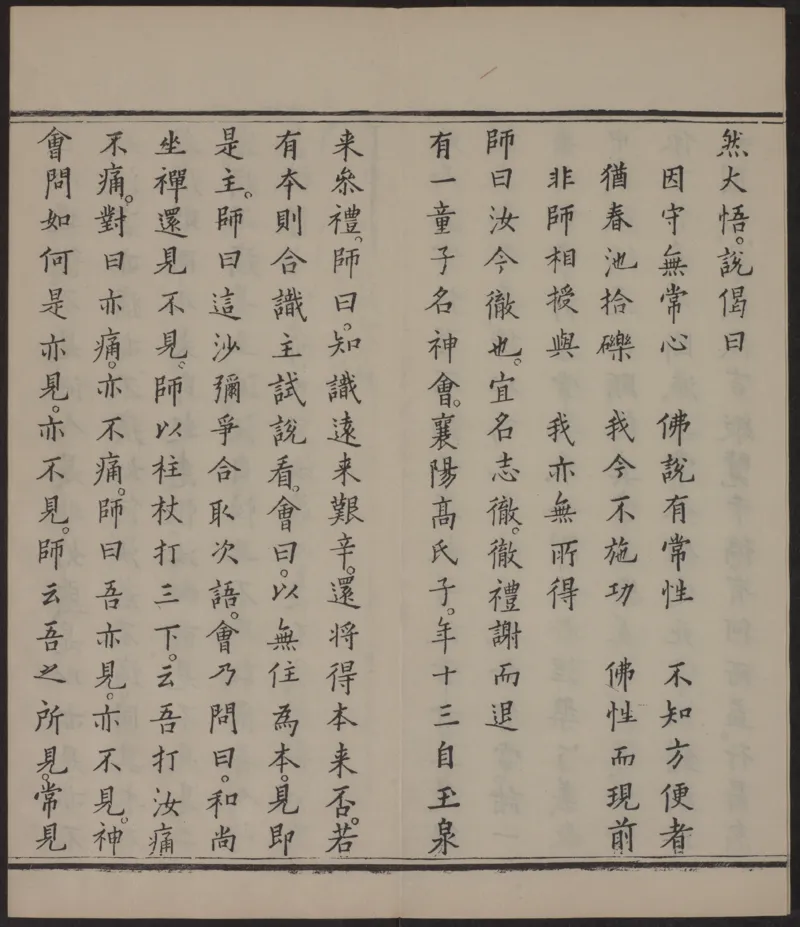 然大悟。說偈曰
因守無常心　佛說有常性　不知方便者
猶春池拾礫　我今不施功　佛性而現前
非師相授與　我亦無所得
師曰汝今徹也。宜名志徹。徹禮謝而退
有一童子名神會。襄陽高氏子。年十三自玉泉
来叅禮。師曰。知識遠来艱辛。還將得本来否。若
有夲則合識主試說看。會曰。以無住為本。見即
是主。師曰這沙彌爭合取次語。會乃問曰。和尚
坐禪還見不見。師以柱杖打三下。云吾打汝痛
不痛。對曰亦痛。亦不痛。師曰吾亦見。亦不見。神
會問如何是亦見。亦不見。師云吾之所見。常見